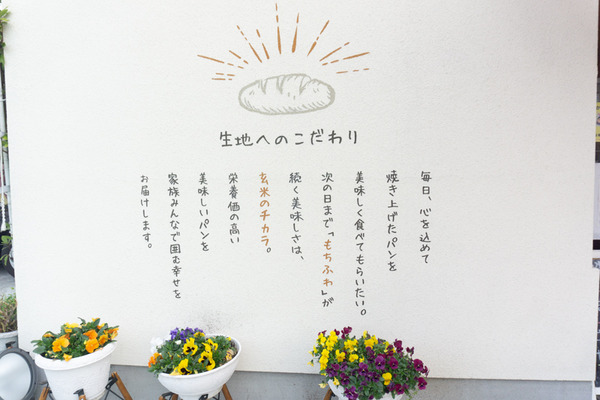 生地へのこだわり
毎日、心を込めて
焼き上げたパンを
美味しく食べてもらいたい。
次の日まで「もちふわ」が
続く美味しさは、
玄米のチカラ。
栄養価の高い
美味しいパンを
家族みんなで囲む幸せを
お届けします。